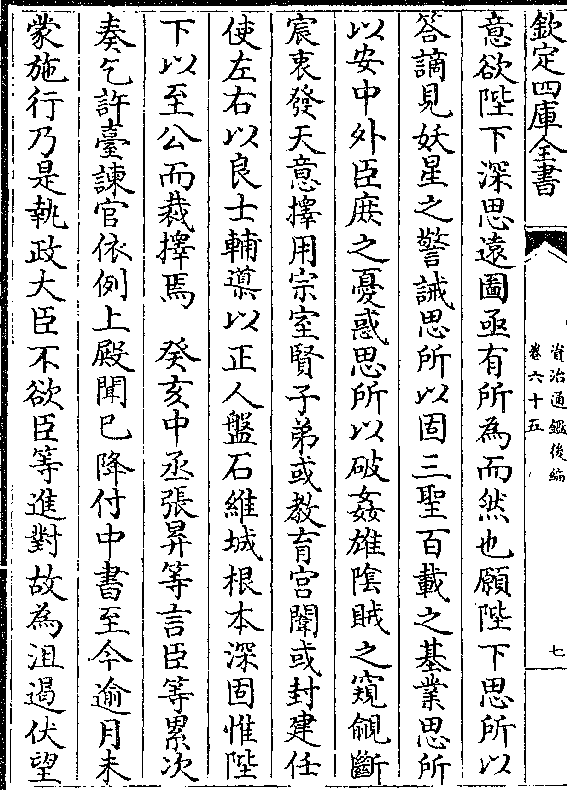 欽定四庫全書
資治通鑑後編
卷六十五
七
意欲陛下深思遠圖亟有所為而然也願陛下思所以
答謫見妖星之警誡思所以固三聖百載之基業思所
以安中外臣庶之憂惑思所以破姦雄陰賊之窺覦斷
宸衷發天意擇用宗室賢子弟或教育宮闈或封建任
使左右以良士輔導以正人盤石維城根本深固惟陛
下以至公而裁擇焉　癸亥中丞張昇等言臣等累次
奏乞許臺諫官依例上殿聞已降付中書至今逾月未
蒙施行乃是執政大臣不欲臣等進對故為沮遏伏望